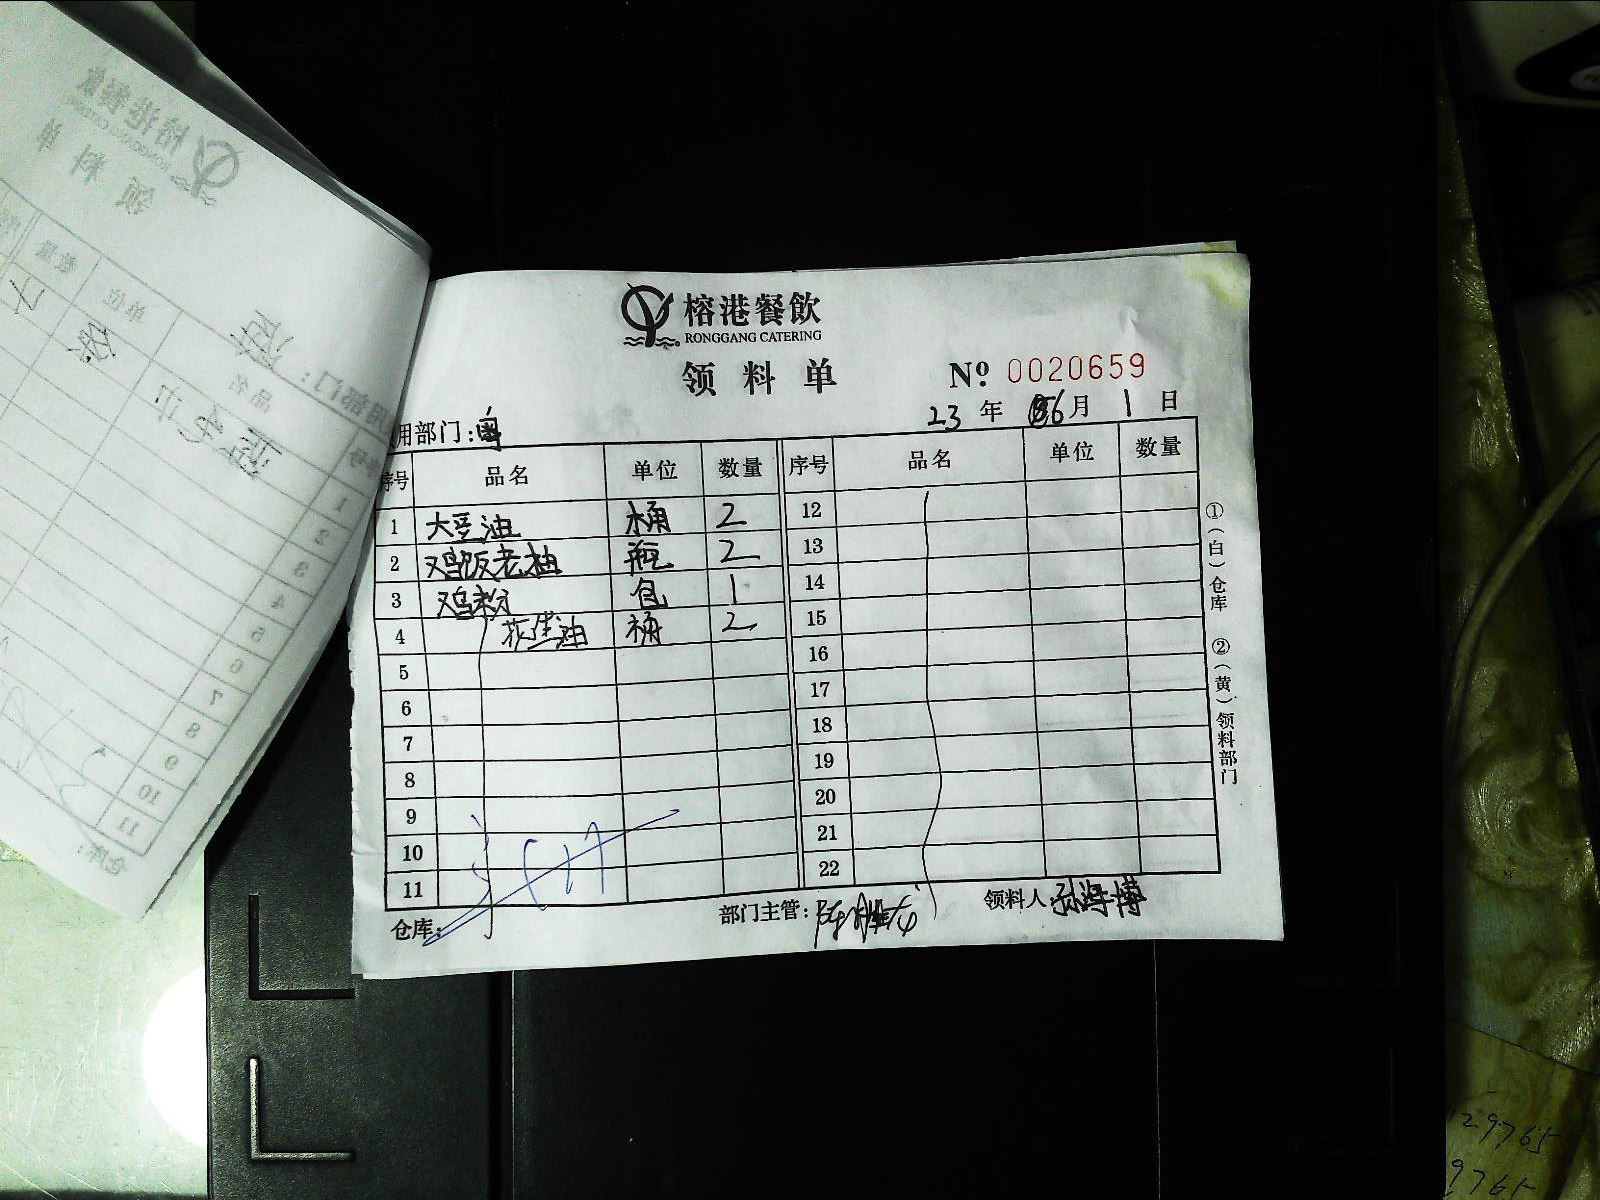 榕港餐飲
RONGGANG CATERING
领料单
Nº 0020659
23年 06月 1日
用部门:粤
序号 品名 单位 数量 序号 品名 单位 数量
1 大豆油 桶 2 12
2 鸡饭老抽 瓶 2 13
3 鸡粉 包 1 14
4 花生油 桶 2 15
5 16
6 17
7 18
8 19
9 20
10 21
11 22
仓库: 部门主管: 领料人:孙海博
①(白)仓库 ②(黄)领料部门
榕港餐飲
RONGGANG CATERING
领料单
用部门:
品名 单位 数量
1
2
3
4
5
6
7
8
9
10
11
仓库:
12.9765
9765